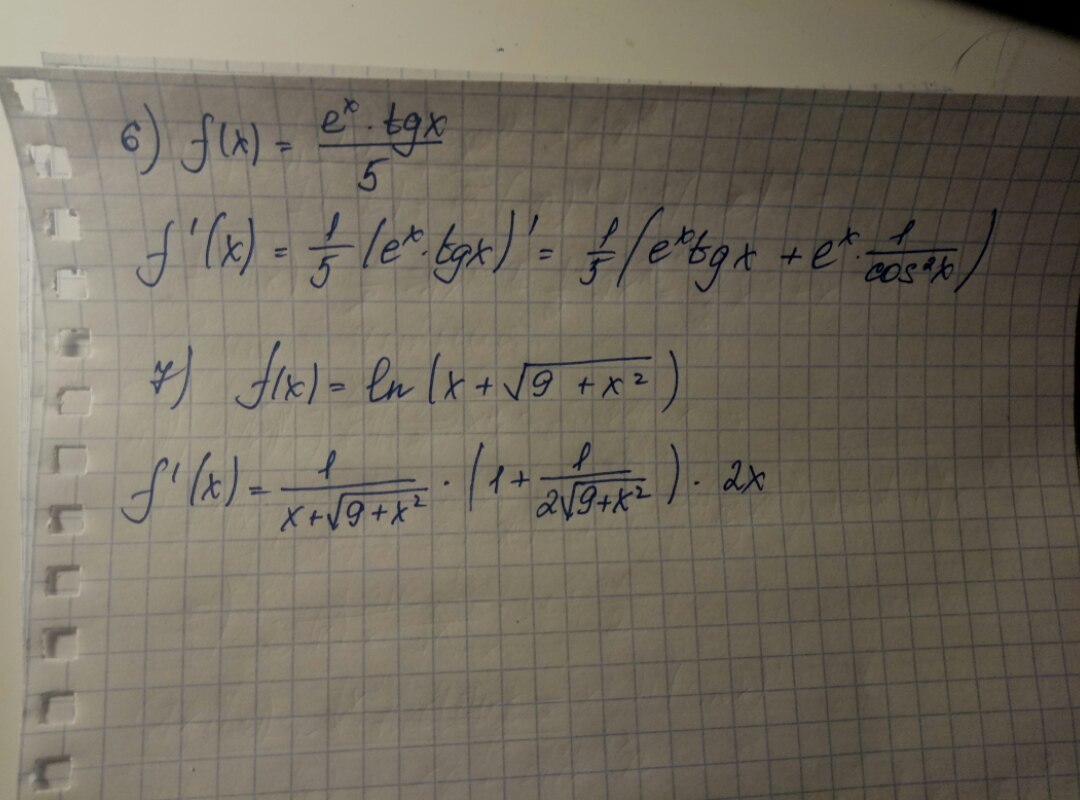 6) f(x) = (e^x · tgx)/5
f'(x) = 1/5 (e^x · tgx)' = 1/5 (e^x tgx + e^x · 1/cos²x)
7) f(x) = ln (x + √(9 + x²))
f'(x) = 1/(x+√(9+x²)) · (1 + 1/(2√(9+x²))) · 2x